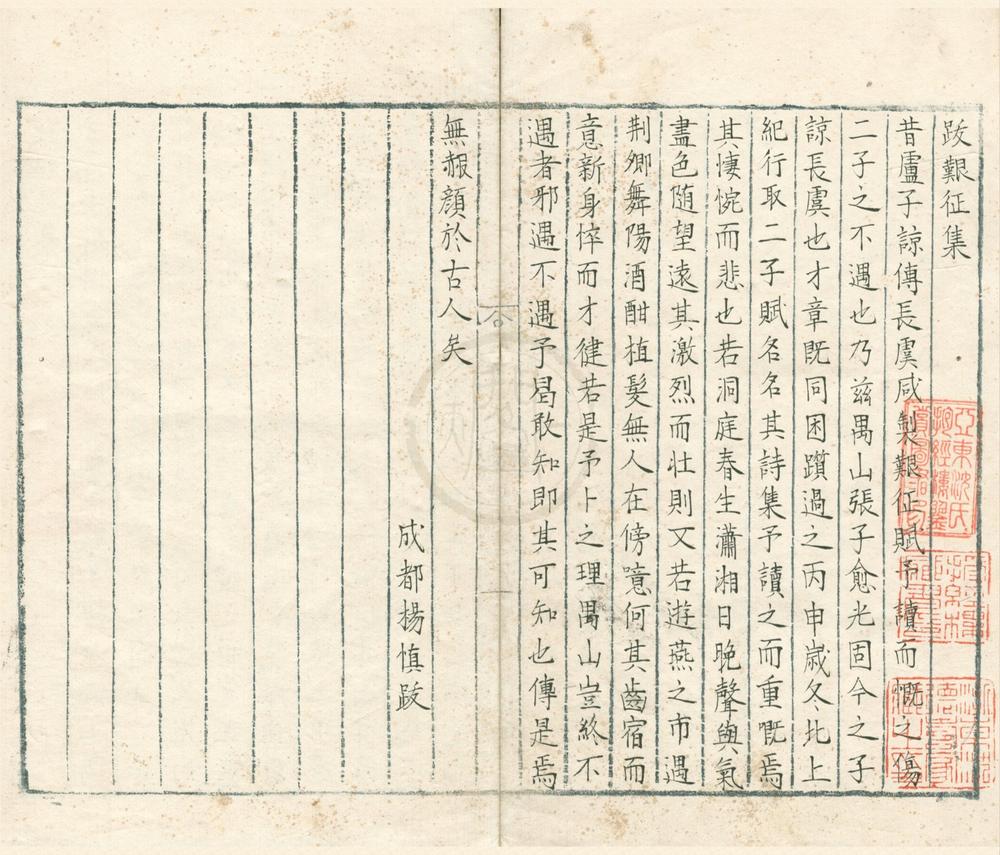 跋艱征集
昔盧子諒傅長虞咸製艱征賦予讀而慨之傷
二子之不遇也乃兹禺山張子愈光固今之子
諒長虞也才章既同困躓過之丙申歲冬北上
紀行取二子賦名名其詩集予讀之而重既焉
其悽惋而悲也若洞庭春生瀟湘日晚聲與氣
盡色随望遠其激烈而壮則又若遊燕之市遇
荆卿舞陽酒酣植髮無人在傍噫何其齒宿而
意新身悴而才健若是予卜之理禺山豈終不
遇者邪遇不遇予曷敢知即其可知也傳是焉
無赧顔於古人矣
成都楊慎跋
亞東沈氏
抱經樓鑒
賞圖書印